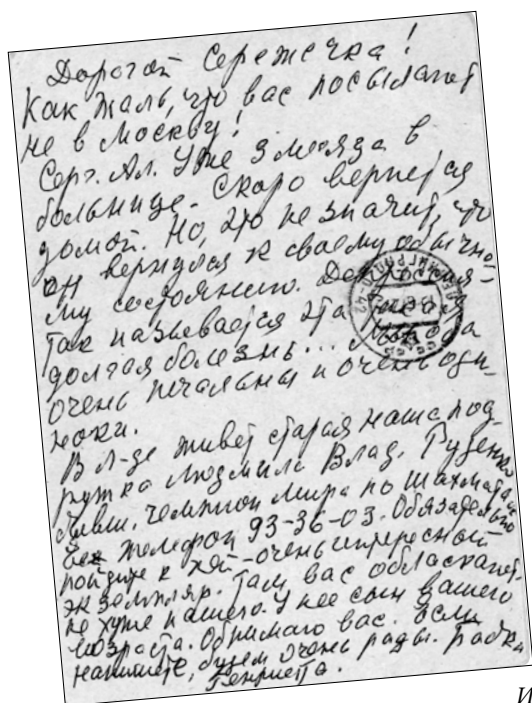 Дорогой Сережечка!
Как жаль, что вас посылают
не в Москву!
Серг. Ал. уже 3 месяца в
больнице. Скоро вернется
домой. Но, это не значит, что
он вернулся к своему обычно-
му состоянию.
так называется эта
долгая болезнь...
очень печальны и очень оди-
ноки.
В Л-де живет старая наша под-
ружка Людмила Влад. Руденко
бывш. чемпион мира по шахматам
Ее телефон 93-36-03. Обязательно
пойдите к ней – очень интересный
экземпляр. Там вас обласкают
не хуже нашего. У нее сын вашего
возраста. Обнимаю вас. Если
напишете, будем очень рады. Бабка
Генриетта.
И